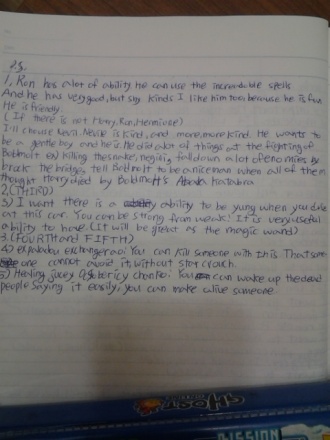 1, Ron has a lot of ability he can use the incrordable spells
And he has very good, but shy kinds. I like him too, because he is fun
He is friendly.
(If there is not Harry, Ron, Hermiose)
I'll choose Nevil. Nevile is kind, and more, more kind. He wants to
be a gentle boy and he is. He did a lot of things at the fighting of
Boldmolt ex) killing the snake, fall down a lot of enomies by
break the bridges, tell Boldmolt to be a nice man when all of the
thought Harry died by Boldmolt's Abada Kadabra
2. (THIRD)
3) I want there is a ability to be yung when you die
at this car. You can be strong from weak. It is very useful
ability to have. (It will be great as the magic wand)
3. (FOURTH and FIFTH)
4) You can kill someone with this. That some
one cannot avoid it, without star crouch.
5) Healing You can wake up the dead
people saying it easily, you can make alive someone
GHOST
MISSION